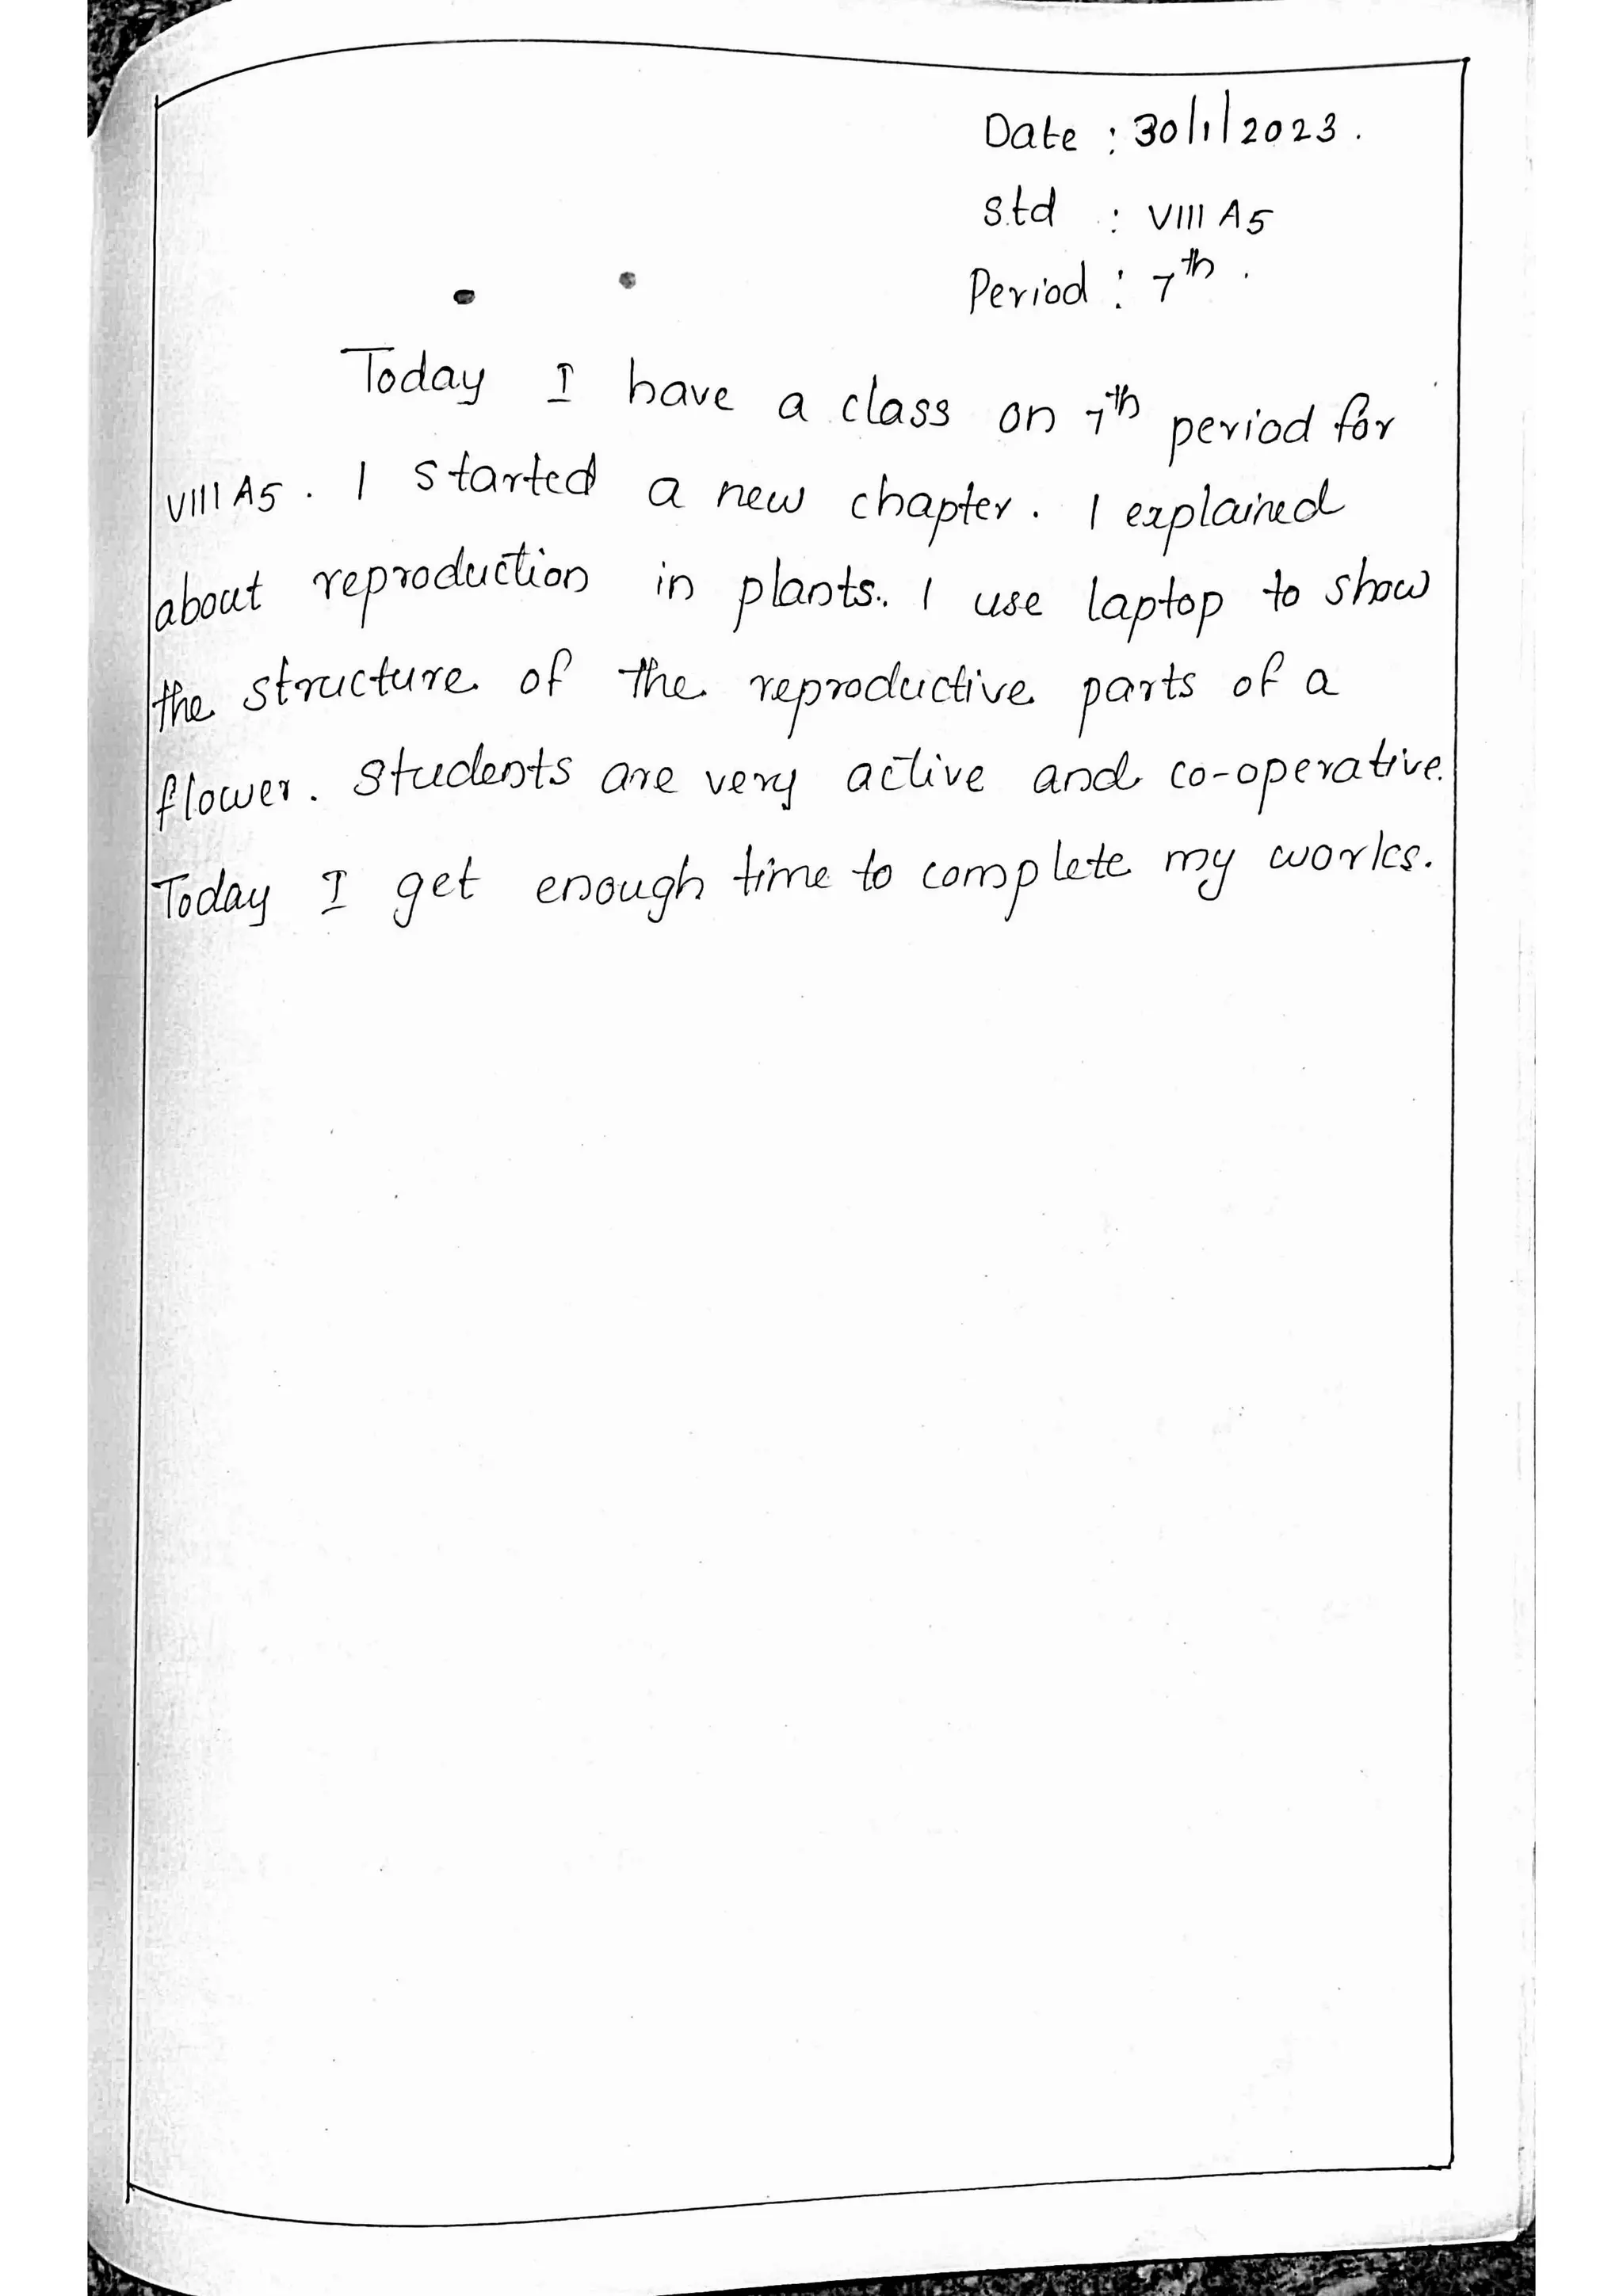 Date : 30/1/2023.
Std : VIII A5
Period : 7th.
Today I have a class on 7th period for
VIII A5. I started a new chapter. I explained
about reproduction in plants. I use laptop to show
the structure of the reproductive parts of a
flower. Students are very active and co-operative.
Today I get enough time to complete my works.